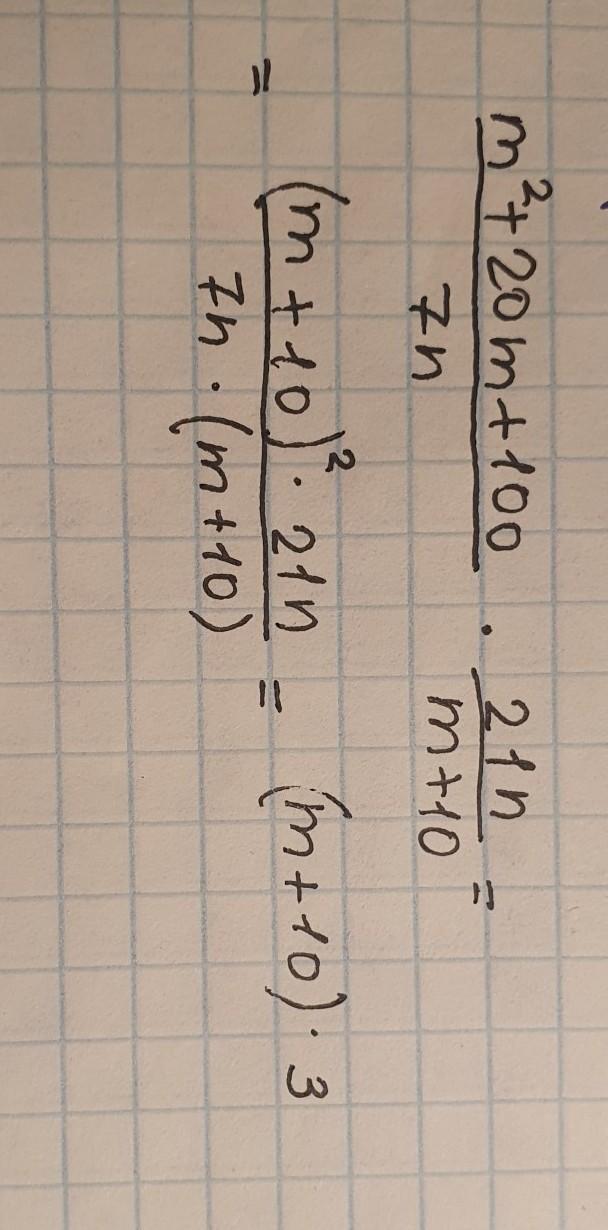 m²+20m+100 / 7n · 21n / m+10 =
= (m+10)² · 21n / 7n · (m+10) = (m+10) · 3